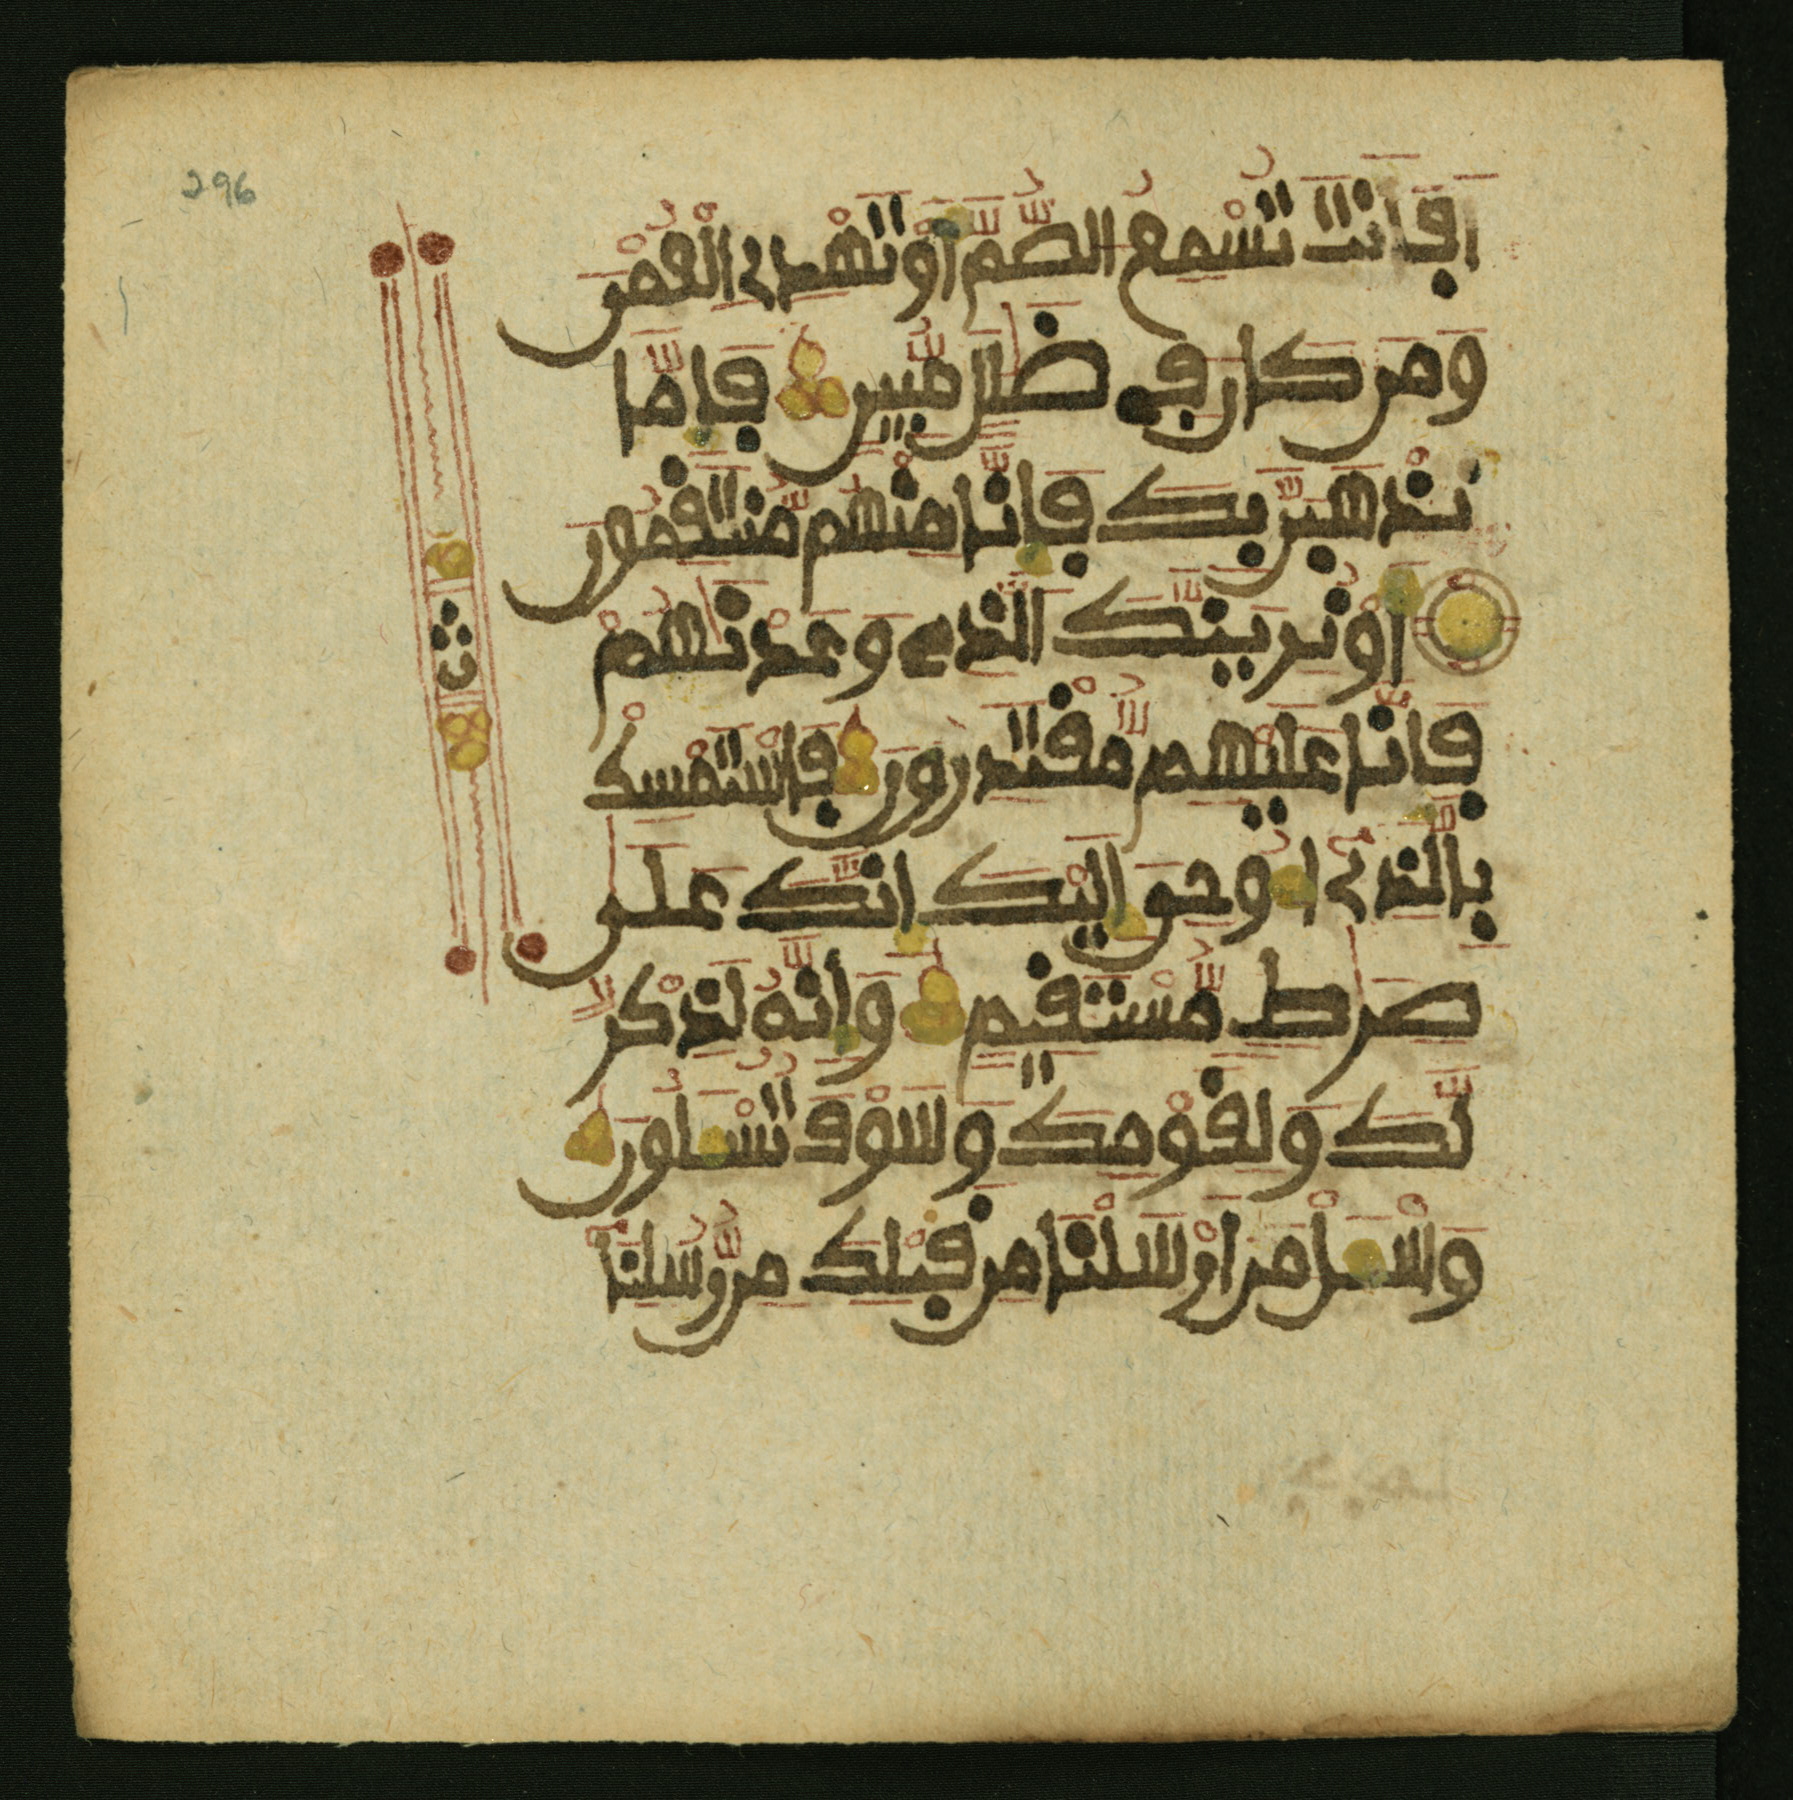 296
اَفَاَنتَ تُسْمِعُ الصُّمَّ أَوْ تَهْدِے اِلْعُمْيَ
وَمَن كَانَ فِے ضَلَٰلٍ مُّبِينٍ فَإِمَّا
نَذْهَبَنَّ بِكَ فَإِنَّا مِنْهُم مُّنتَقِمُونَ
أَوْ نُرِيَنَّكَ الَّذِے وَعَدْنَٰهُمْ
فَإِنَّا عَلَيْهِم مُّقْتَدِرُونَ فَاسْتَمْسِكْ
بِالَّذِے أُوحِيَ إِلَيْكَ إِنَّكَ عَلَىٰ
صِرَٰطٍ مُّسْتَقِيمٍ وَإِنَّهُ لَذِكْرٌ
لَّكَ وَلِقَوْمِكَ وَسَوْفَ تُسْـَٔلُونَ
وَسْـَٔلْ مَنَ اَرْسَلْنَا مِن قَبْلِكَ مِن رُّسُلِنَا